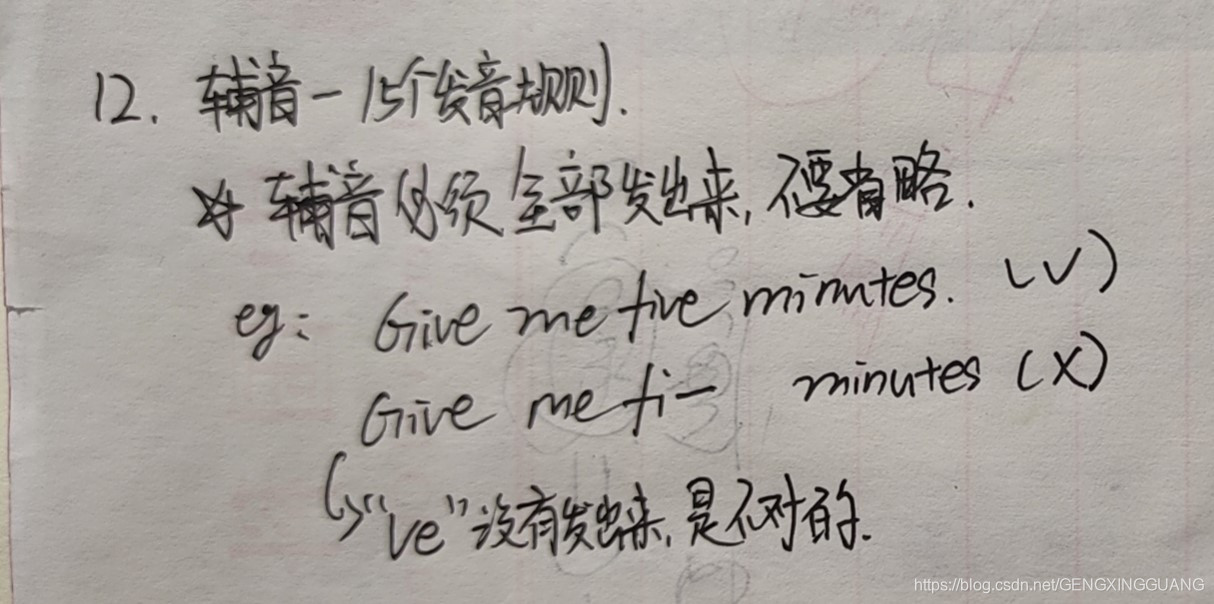 12. 辅音-15个发音规则.
☆ 辅音必须全部发出来,不要省略.
eg: Give me five minutes. (√)
Give me fi- minutes (×)
↳"ve"没有发出来,是不对的.
https://blog.csdn.net/GENGXINGGUANG